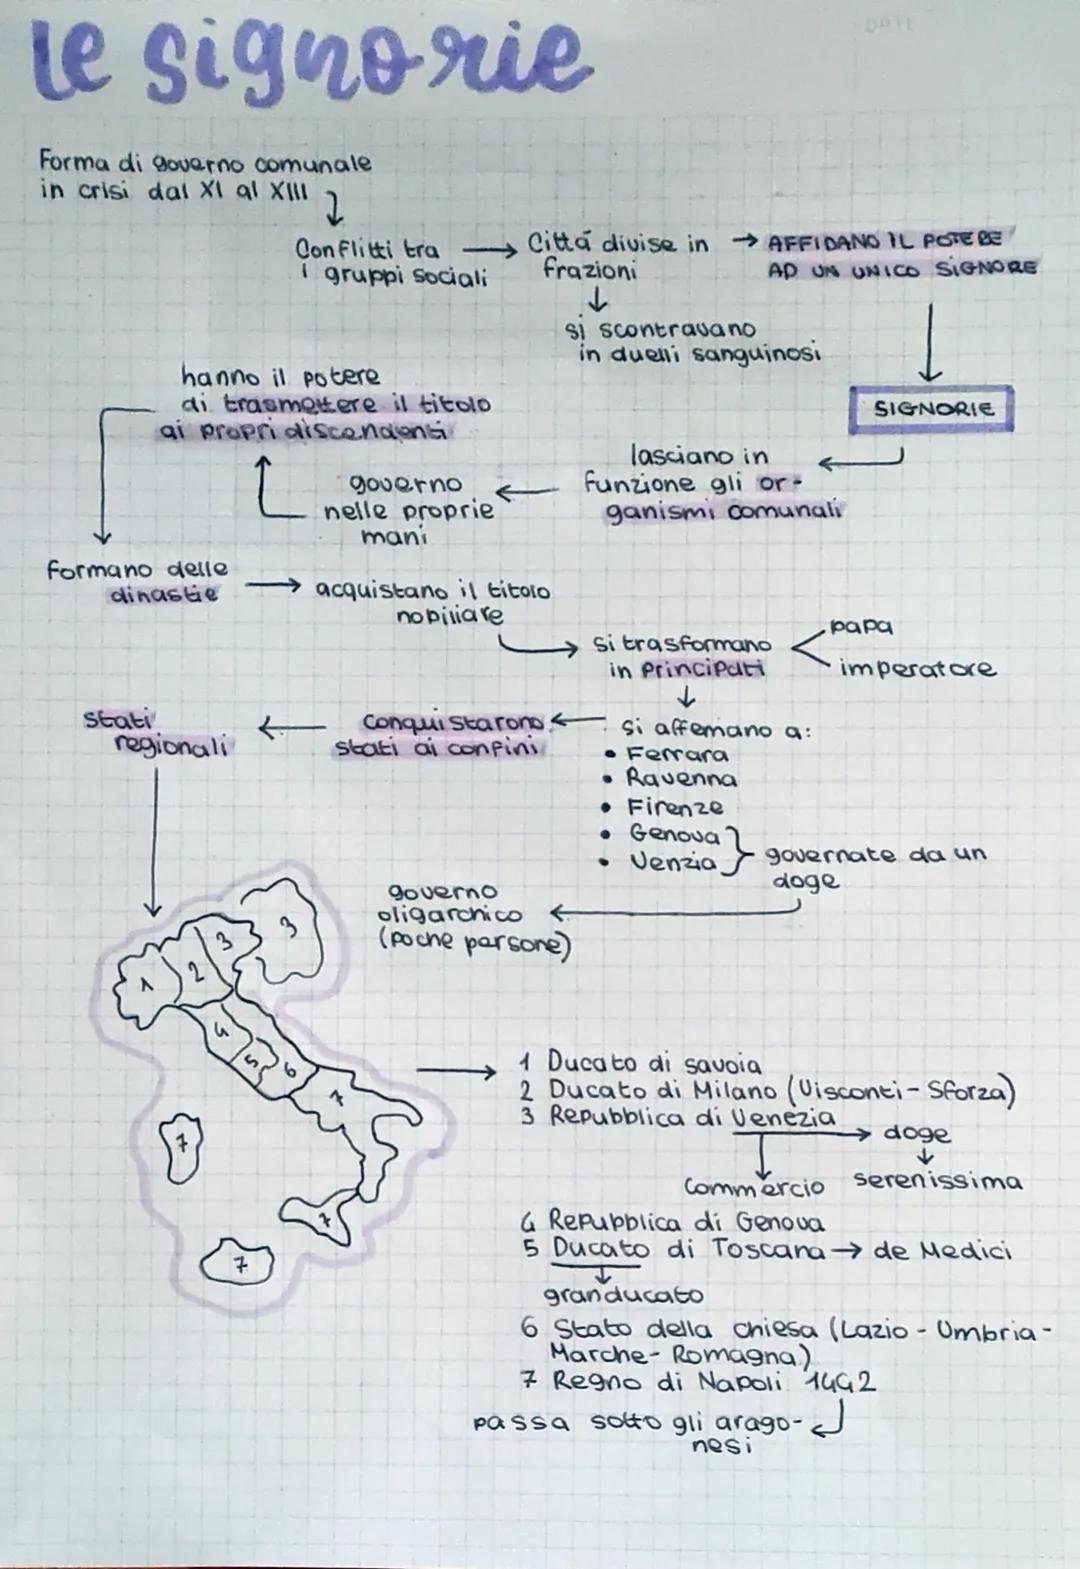 le signorie
Forma di governo comunale
in crisi dal XI al XIII
Conflitti tra
i gruppi sociali
Cittá divise in
frazioni
AFFIDANO IL POTERE
AD UN UNICO SIGNORE
si scontravano
in duelli sanguinosi
SIGNORIE
hanno il potere
di trasmettere il titolo
ai propri discendenti
lasciano in
funzione gli or-
ganismi comunali
governo
nelle proprie
mani
formano delle
dinastie
acquistano il titolo
nobiliare
si trasformano
in Principati
papa
imperatore
stati
regionali
conquistarono
stati ai confini
si affemano a:
• Ferrara
• Ravenna
• Firenze
• Genova
• Venzia
governate da un
doge
governo
oligarchico
(poche persone)
3
3
2
1
4
5
6
7
7
7
7
1 Ducato di savoia
2 Ducato di Milano (Visconti - Sforza)
3 Repubblica di Venezia
doge
commercio
serenissima
4 Repubblica di Genova
5 Ducato di Toscana → de Medici
granducato
6 Stato della chiesa (Lazio - Umbria -
Marche - Romagna)
7 Regno di Napoli 1442
passa sotto gli arago-
nesi